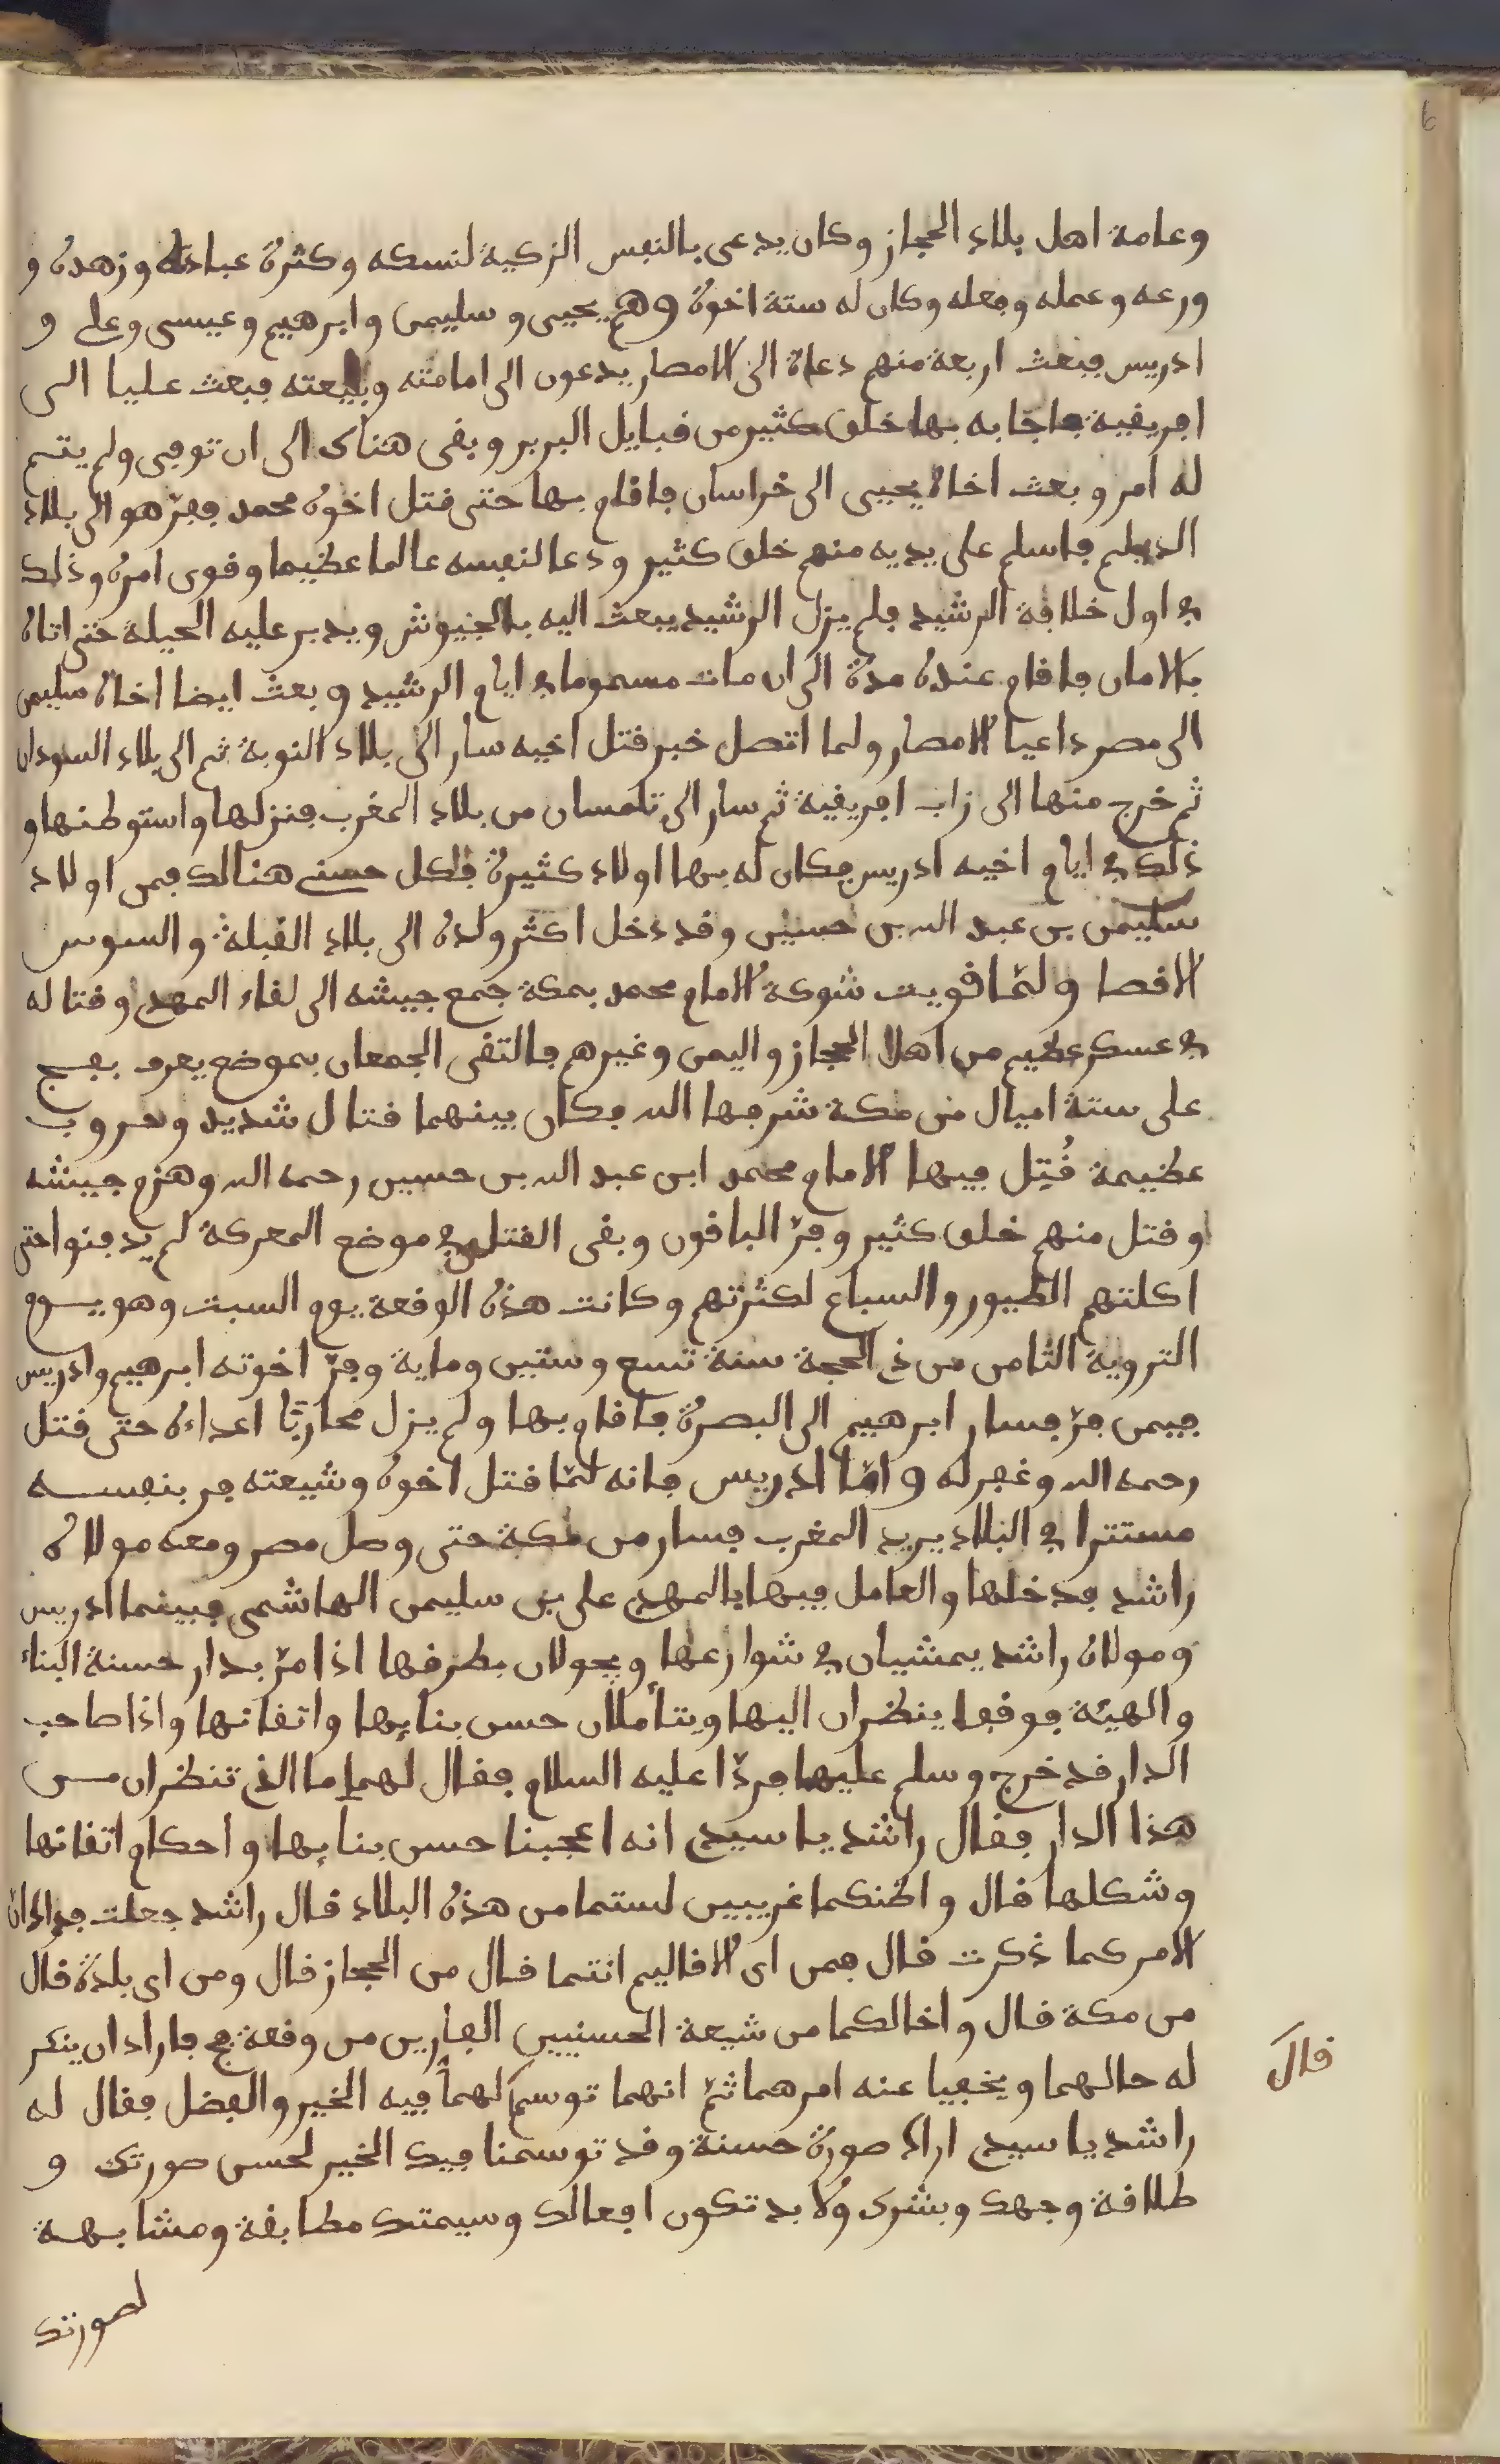 وعامة اهل بلاد الحجاز وكان يدعى بالنفس الزكية لنسكه وكثرة عبادته وزهده و
ورعه وعمله وفعله وكان له ستة اخوة وهم يحيى وسليمن وابرهيم وعيسى وعلي و
ادريس فبعث اربعة منهم دعاة الى الامصار يدعون الى امامته وبيعته فبعث عليا الى
افريقية فاجابه بها خلق كثير من قبايل البربر وبقى هناك الى ان توفى ولم يتم
له امر وبعث اخاه يحيى الى خراسان فاقام بها حتى قتل اخوه محمد ففرّ هو الى بلاد
الديلم فاسلم على يديه منهم خلق كثير ودعا لنفسه عالما عظيما وقوى امره وذلك
في اول خلافة الرشيد فلم يزل الرشيد يبعث اليه بالجنيوش ويدبر عليه الحيلة حتى اتاه
بالامان فاقام عنده مدة الى ان مات مسموما في ايام الرشيد وبعث ايضا اخاه سليمن
الى مصر داعيا الامصار ولما اتصل خبر قتل اخيه سار الى بلاد النوبة ثم الى بلاد السودان
ثم خرج منها الى زاب افريقية ثم سار الى تلمسان من بلاد المغرب فنزلها واستوطنها و
ذلك في ايام اخيه ادريس فكان له بها اولاد كثيرة فكل حسنى هنالك فمن اولاد
سليمن بن عبد الله بن حسين وقد دخل اكثر ولده الى بلاد القبلة والسوس
الاقصا ولمّا قويت شوكة الامام محمد بمكة جمع جيشه الى لقاء المهدي وقتاله
في عسكر عظيم من اهل الحجاز واليمن وغيرهم فالتقى الجمعان بموضع يعرف بفج
على ستة اميال من مكة شرفها الله فكان بينهما قتال شديد وحروب
عظيمة قُتِل فيها الامام محمد ابن عبد الله بن حسين رحمه الله وهزم جيشه
وقتل منهم خلق كثير وفرّ الباقون وبقى القتلى في موضع المعركة لم يدفنوا حتى
اكلتهم الطيور والسباع لكثرتهم وكانت هذه الوقعة يوم السبت وهو يوم
التروية الثامن من ذي الحجة سنة تسع وستين وماية وفرّ اخوته ابرهيم وادريس
فيمن فرّ فسار ابرهيم الى البصرة فاقام بها ولم يزل محاربًا اعداءه حتى قتل
رحمه الله وغفر له وامّا ادريس فانه لمّا قتل اخوه وشيعته فر بنفسه
مستترا في البلاد يريد المغرب فسار من مكة حتى وصل مصر ومعه مولاه
راشد فدخلها والعامل فيها بالمهدي علي بن سليمن الهاشمي فبينما ادريس
ومولاه راشد يمشيان في شوارعها ويجولان بطرفها اذا مرّ بدار حسنة البناء
والهيئة فوقفا ينظران اليها ويتأملان حسن بنايها واتقانها واذا صاحب
الدار قد خرج وسلم عليهما فردّا عليه السلام فقال لهما ما الذي تنظران من
هذا الدار فقال راشد يا سيدي انه اعجبنا حسن بنايها واحكام اتقانها
وشكلها قال واظنكما غريبين لستما من هذه البلاد قال راشد جعلت فداك ان
الامر كما ذكرت قال فمن اى الاقاليم انتما قال من الحجاز قال ومن اى بلدة قال
من مكة قال واخالكما من شيعة الحسنيين الفارين من وقعة فج فاراد ان ينكر
قال
له حالهما ويخفيا عنه امرهما ثمّ انهما توسم لهما فيه الخير والفضل فقال له
راشد يا سيدي اراك صورة حسنة وقد توسمنا فيك الخير لحسن صورتك و
طلاقة وجهك وبشرك ولا بد تكون افعالك وسيمتك مطابقة ومشابهة
لصورتك